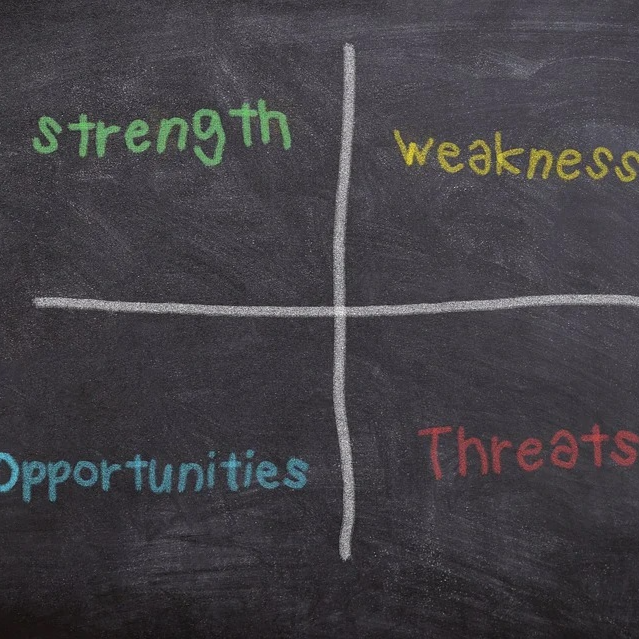 strength
weakness
Opportunities
Threats